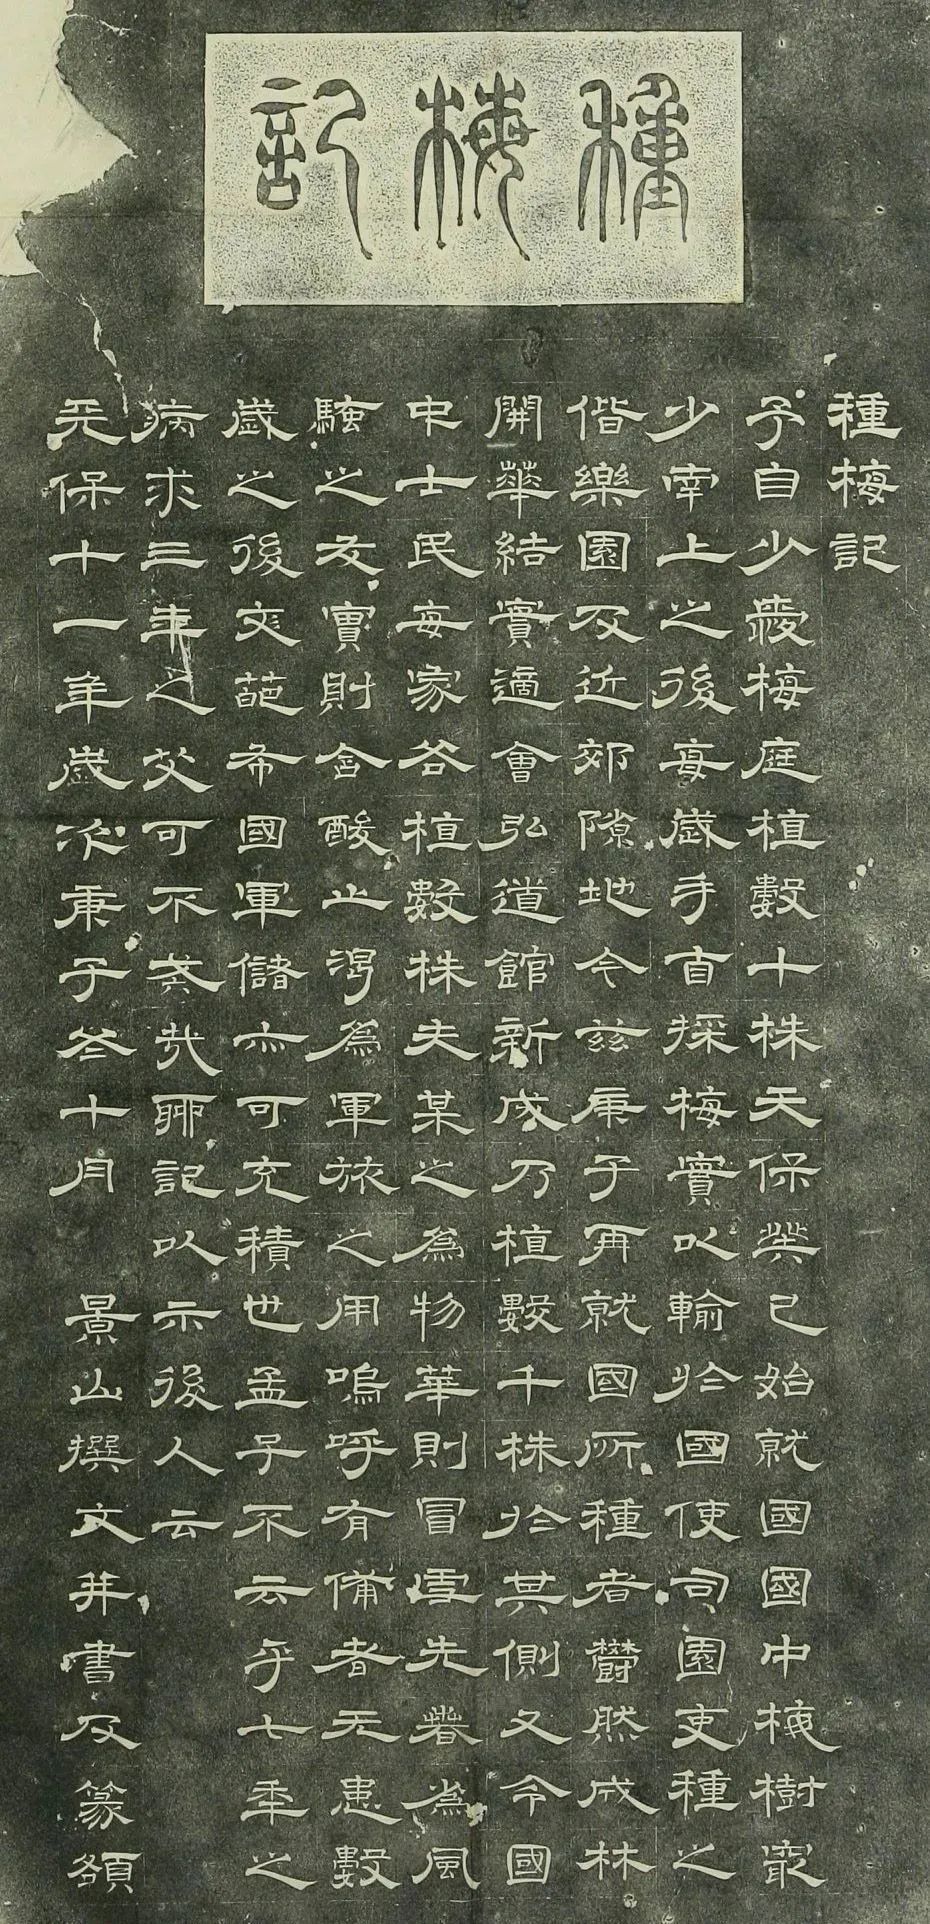 種梅記
種梅記
予自少愛梅庭植數十株天保癸巳始就國國中梅樹最
少南上之後每歲手自採梅實以輸於國使司園吏種之
偕樂園及近郊隙地今茲庚子再就國所種者鬱然成林
開華結實適會弘道館新成乃植數千株於其側又令國
中士民每家各植數株夫某之爲物華則冒雪先春爲風
騷之友實則含酸止渴爲軍旅之用嗚呼有備者无患數
歲之後文葩布國軍儲亦可充積也孟子不云乎七年之
病求三年之艾可不哉聊記以示後人云
天保十一年歲次庚子冬十月 景山撰文并書及篆額